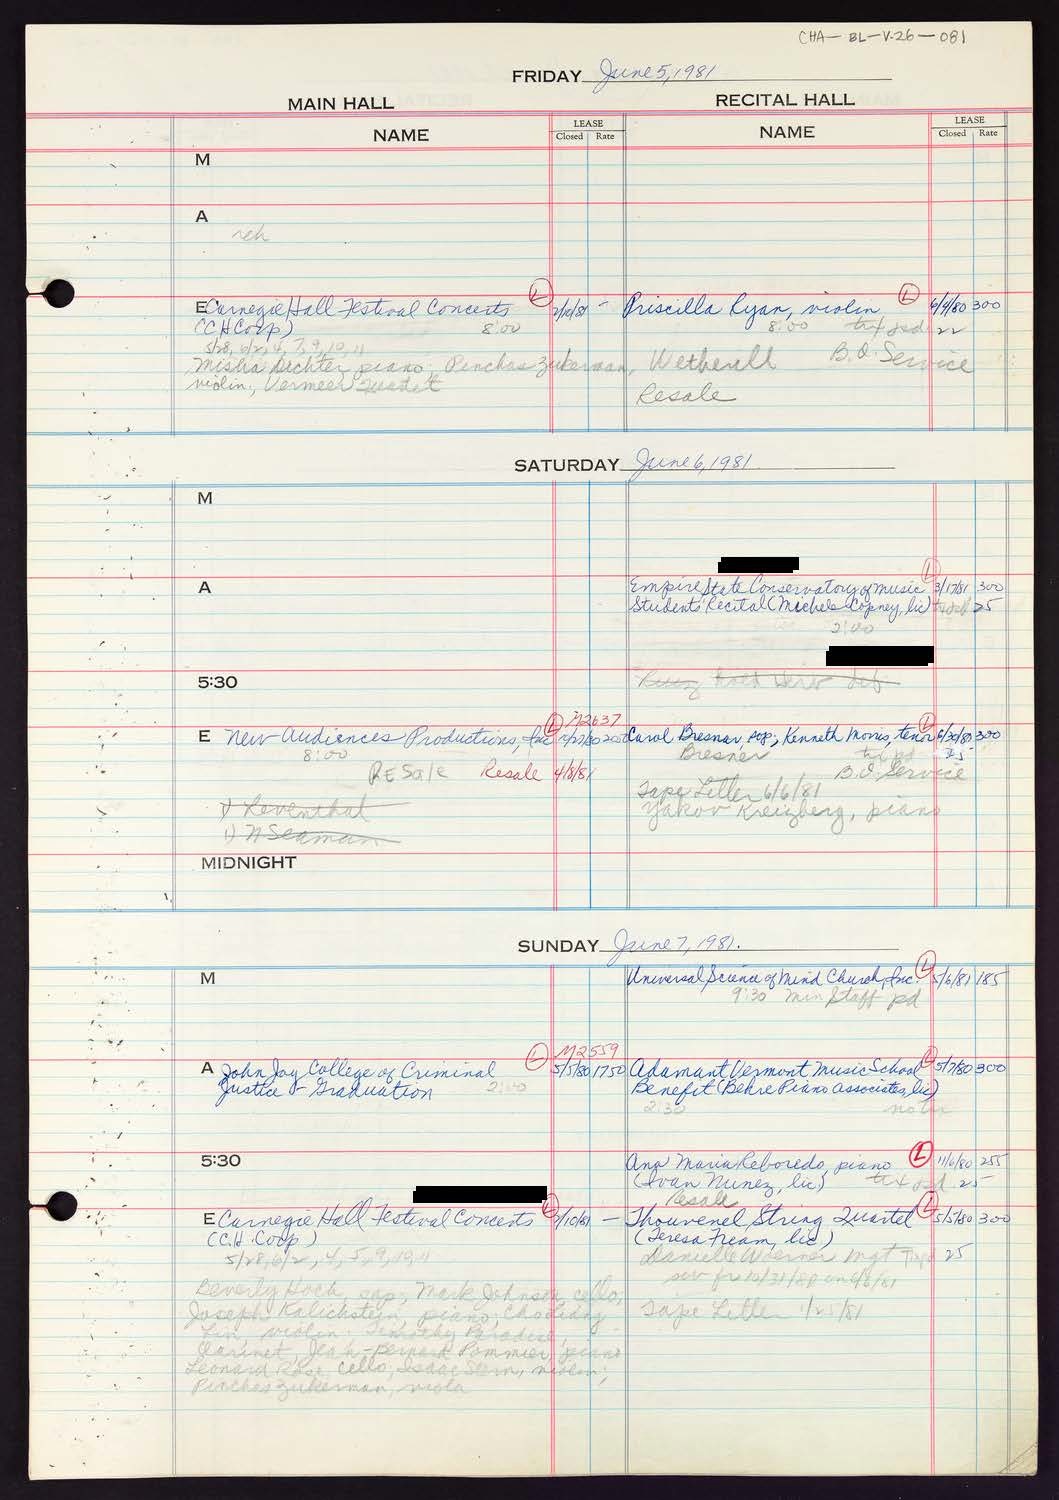 CHA-BL-V.26-081
FRIDAY June 5, 1981
MAIN HALL
RECITAL HALL
NAME
LEASE
Closed Rate
NAME
LEASE
Closed Rate
M
A
reh
E Carnegie Hall Festival Concerts L 2/10/81 -
(CH Corp) 8:00
5/28, 6/2, 4, 7, 9, 10, 11
Misha Dichter piano, Pinchas Zukerman,
violin, Vermeer Quartet
Priscilla Ryan, violin L 6/9/80 300
8:00 22
Wetherell B.O. Service
Resale
SATURDAY June 6, 1981
M
A
Empire State Conservatory of Music L 3/17/81 300
Students Recital (Michele Copney, lic) 25
2:00
5:30
E New Audiences Productions, Inc L M2637
8:00
Resale Resale 4/8/81
1) Leventhal
1) N Seaman
Carol Bresner, sop; Kenneth Morris, tenor L 6/30/80 300
Bresner 25
B.O. Service
Tape Letter 6/6/81
Yakov Kreizberg, piano
MIDNIGHT
SUNDAY June 7, 1981.
M
Universal Science of Mind Church, Inc. L 5/6/81 185
9:30 Min Staff pd
A John Jay College of Criminal L M2559 5/5/80 1750
Justice - Graduation 2:00
Adamant Vermont Music School L 5/7/80 300
Benefit (Behre Piano Associates, lic)
2:30 no tix
5:30
Ana Maria Reboredo, piano L 11/6/80 255
(Ivan Nunez, lic) 25
Resale
E Carnegie Hall Festival Concerts L 2/10/81 -
(C.H. Corp)
5/28, 6/2, 4, 5, 9, 10, 11
Beverly Hoch, sop; Mark Johnson, cello;
Joseph Kalichstein, piano; Cho-Liang
Lin, violin; Timothy Paradise,
Clarinet, Jean-Bernard Pommier, piano
Leonard Rose, cello, Isaac Stern, violin;
Pinchas Zukerman, viola
Thouvenel String Quartet L 5/5/80 300
(Teresa Fream, lic)
Danielle Woerner Mgt 25
Tape Letter 1/25/81